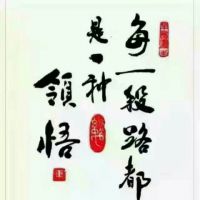 每一段路都
是一种
領悟